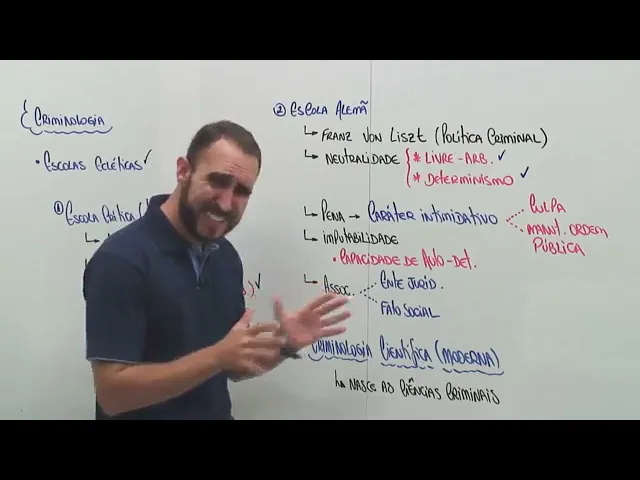 CRIMINOLOGIA
• ESCOLAS ECLÉTICAS ✓
① ESCOLA CRÍTICA (
② ESCOLA ALEMÃ
↳ FRANZ VON LISZT (POLÍTICA CRIMINAL)
↳ NEUTRALIDADE { * LIVRE-ARB. ✓
* DETERMINISMO ✓
↳ PENA → CARÁTER INTIMIDATIVO
CULPA
MANUT. ORDEM
PÚBLICA
↳ IMPUTABILIDADE
• CAPACIDADE DE AUTO-DET.
↳ ASSOC.
ENTE JURÍD.
FATO SOCIAL
CRIMINOLOGIA CIENTÍFICA (MODERNA)
↳ NASCE AS CIÊNCIAS CRIMINAIS